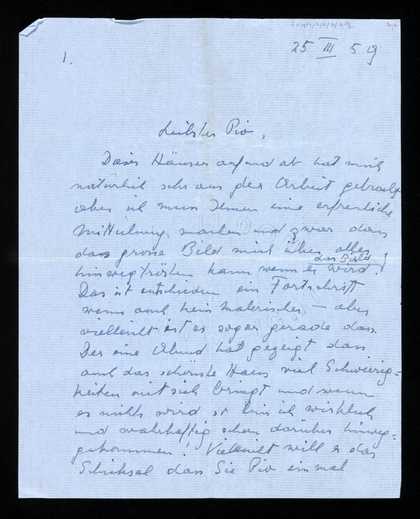 25 III 59
1.
Liebster Pio,
Dieses Häuser auf und ab hat mich
natürlich sehr aus der Arbeit gebracht
aber ich muss Ihnen eine erfreuliche
Mitteilung machen und zwar dass
das grosse Bild mich über alles
das Bild
hinwegtrösten kann wenn es wird!
Das ist entschieden ein Fortschritt
wenn auch kein malerischer – aber
vielleicht ist es sogar gerade das.
Der eine Abend hat gezeigt dass
auch das schönste Haus viel Schwierig-
keiten mit sich bringt und wenn
es nichts wird so bin ich wirklich
und wahrhaftig schon darüber hinweg-
gekommen! Vielleicht will es das
Schicksal dass Sie Pio einmal